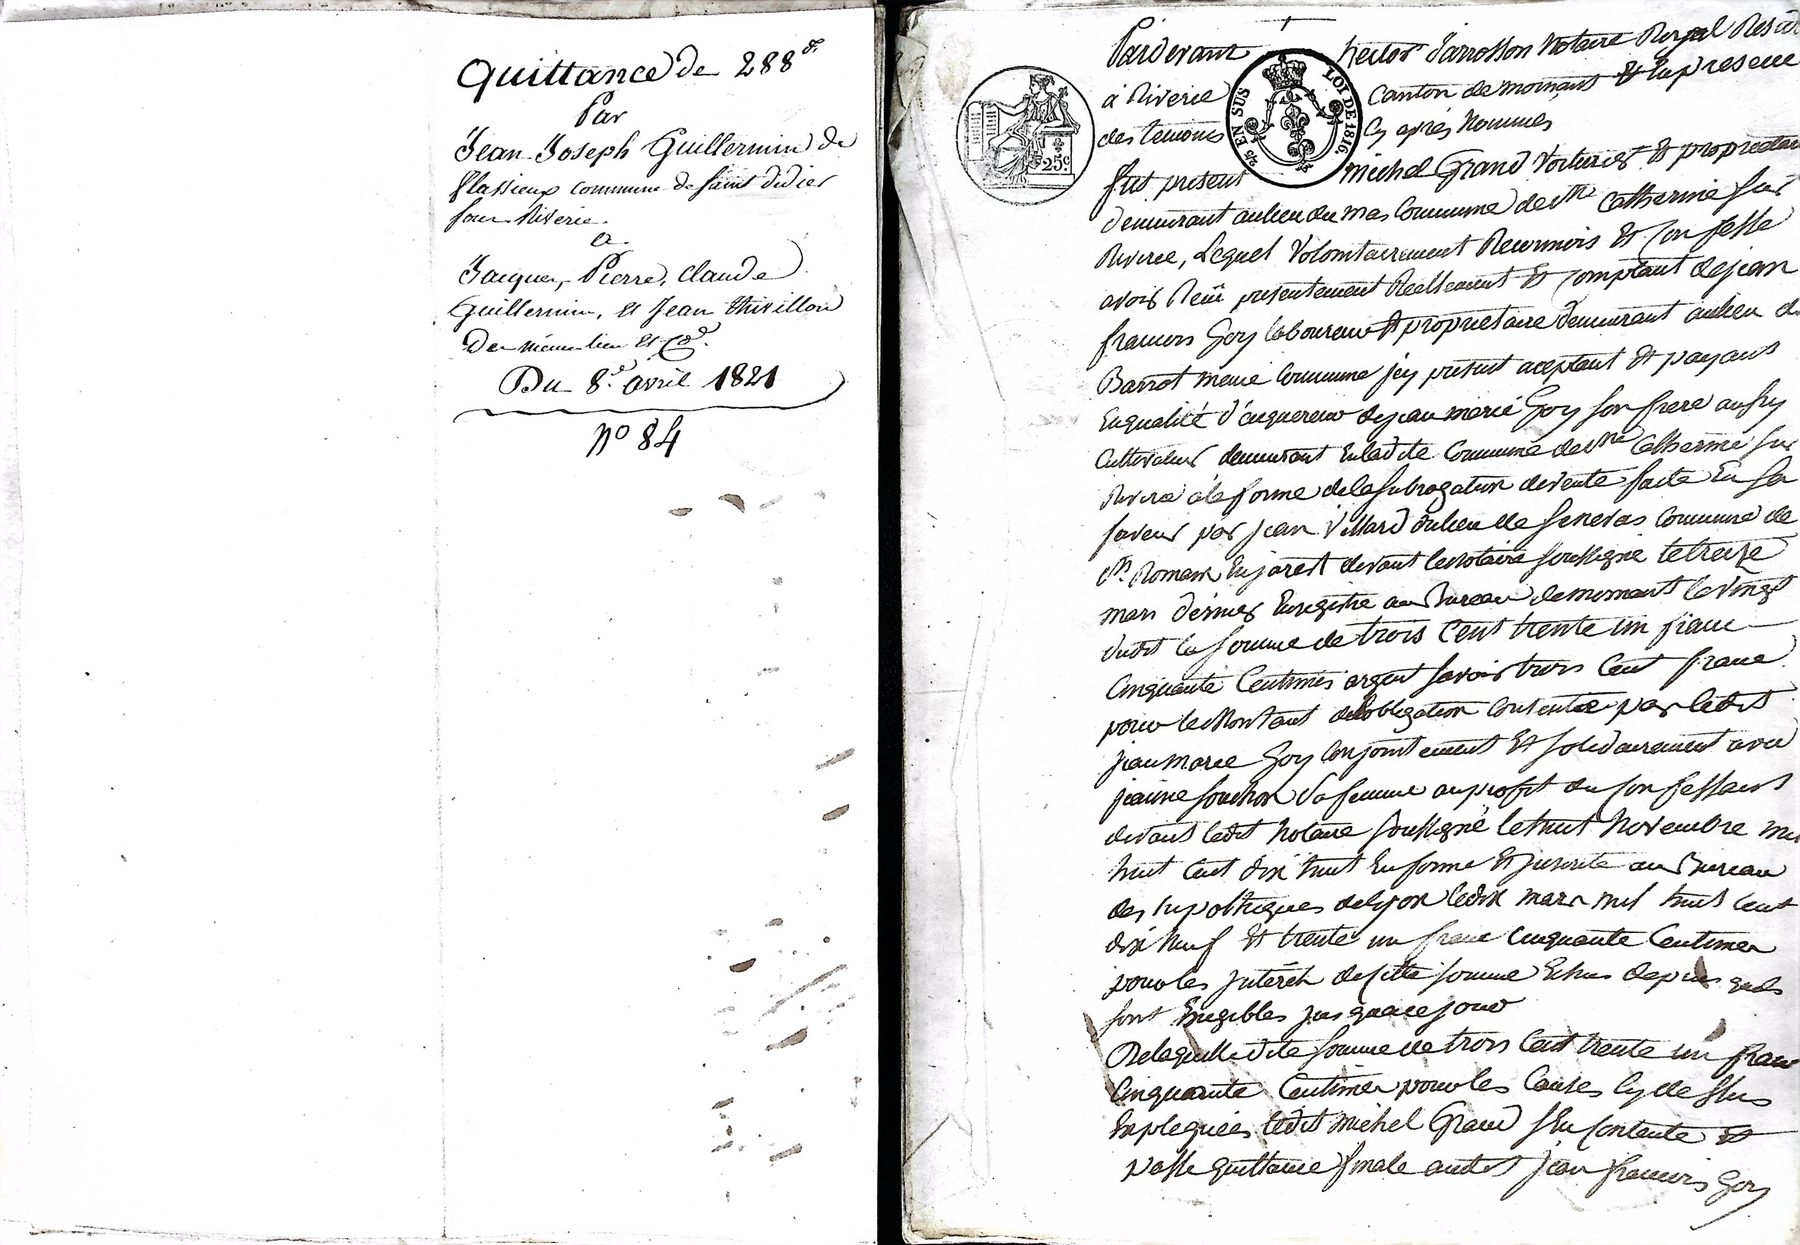 Quittance de 288 f.
Par
Jean Joseph Guillermin de
flassieux commune de saint didier
sous Riverie.
a
Jacques, Pierre, Claude
Guillermin, et Jean thivillon
Du même lieu et Cie.
Du 8.e avril 1821
No 84
25c.
25c EN SUS
LOI DE 1816.
Pardevant hector Notaire Royal
à Riverie Canton de mornant Et En presence
des temoins Cy après Nommés
fut present michel Grand Voiturier Et proprietaire
demeurant au lieu du mas Commune de Ste Catherine sur
Riverie, Lequel Volontairement Reconnois Et Confesse
avoir Reçû presentement Reellement Et Comptant de jean
francois Goy laboureur Et proprietaire demeurant au lieu de
Barrot meme Commune jcy present aceptant Et payant
En qualité d'acquereur de jean marie Goy son frere
Cultivateur demeurant En ladite Commune de Ste Catherine sur
Riverie à la forme de la subrogation de vente faite En sa
faveur par jean Villard du lieu de Commune de
St. Romain En jarest devant le Notaire soussigné le treize
mars dernier Enregistré au Bureau de mornant le vingt
dudit la somme de trois Cent trente un franc
Cinquante Centimes argent savoir trois Cent franc
pour le Montant de l'obligation Consentie par ledit
jean marie Goy Conjointement Et solidairement avec
jeanne souchon sa femme au profit du Confessant
devant ledit Notaire soussigné le huit Novembre mil
huit Cent dix huit En forme Et jnscrite au Bureau
des hipothèques de lyon le dix mars mil huit Cent
dix Neuf Et trente un franc Cinquante Centimes
pour les jnterêts de Cette somme Echus depuis quils
sont Exigibles jusqu'à ce jour
De laquelle dite somme de trois Cent trente un franc
Cinquante Centimes pour les Causes Cy dessus
Expliquées ledit michel Grand s'En Contente Et
passe quittance finale audit jean francois Goy